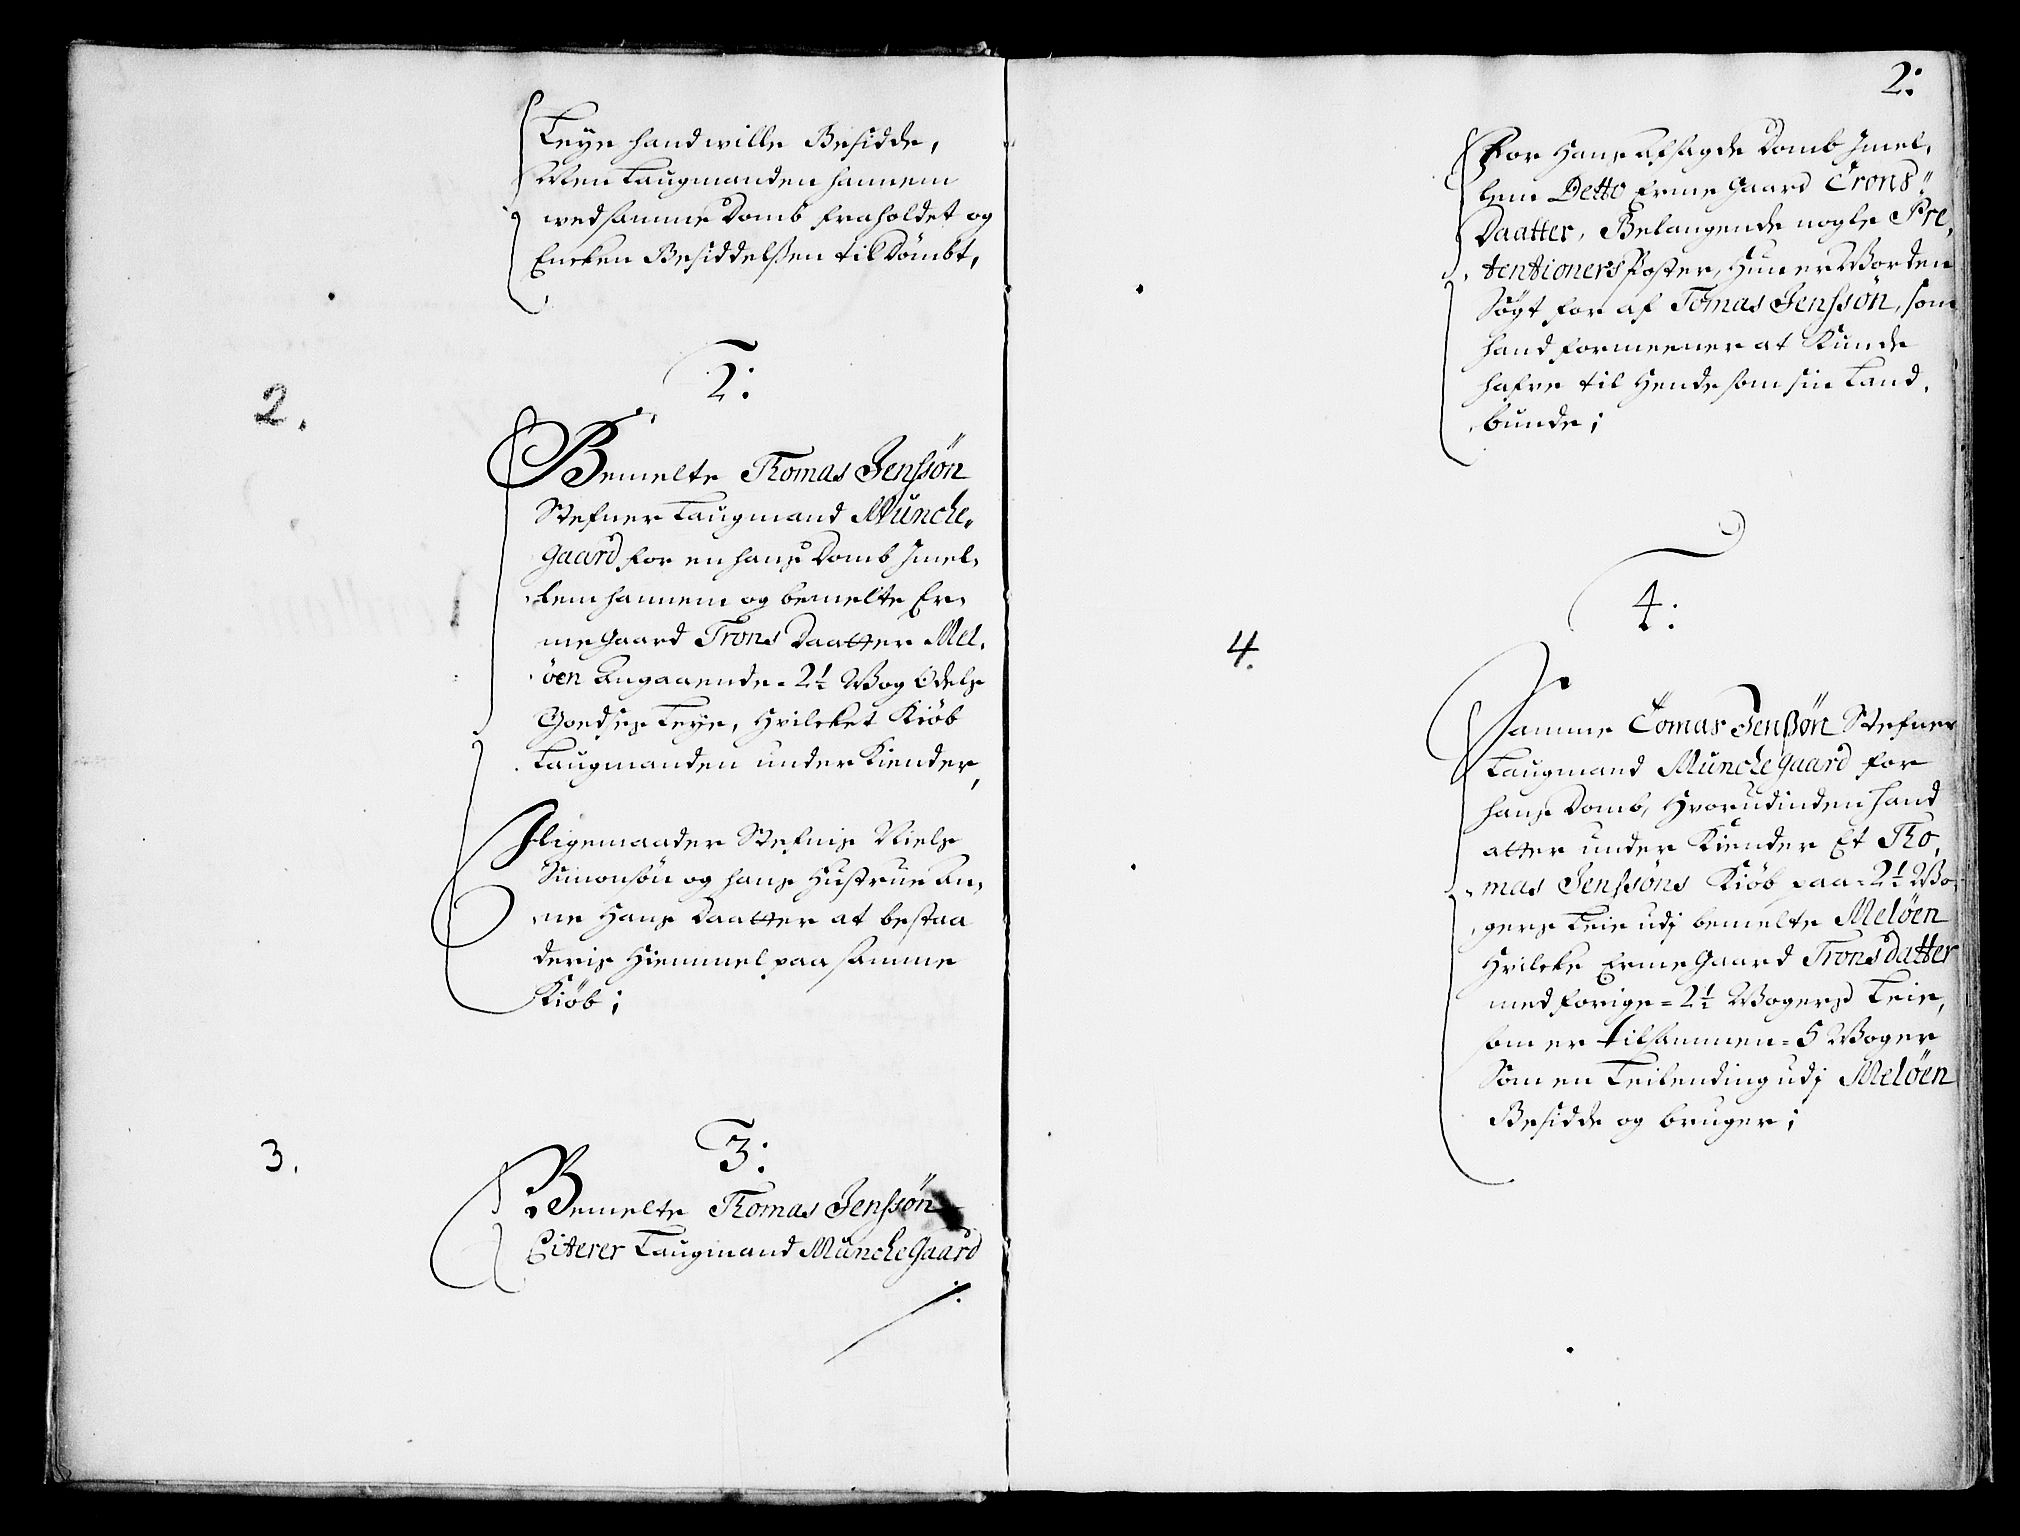 Leye hand wille Besidde,
Men Laugmanden hannem
ved samme Domb fraholdet og
Encken Besiddelsen til Dömbt,
2:
2.
Bemelte Thomas Jenssön
Stefner Laugmand Münche,,
gaard for en hans Domb Imel,
lem hannem og bemelte Er,
megaard Trons Daatter Mel,
öen Angaaende = 2½ Wog Odels
Goedses Leye, Hvilcket Kiöb
Laugmanden under Kiender,
Iligemaader Stefnis Niels
Simonsön og hans Hustrue An,
ne Hans Daatter at bestaa
deris Hiemmel paa samme
Kiöb;
3:
3.
Bemelte Thomas Jenssön
Citerer Laugmand Münchegaard
2:
For Hans afsagde Domb Imel,
lem Detto Ermegaard Trons,,
Daatter, Belangende nogle Pre,
tentioners Poster, Hun er Worden
Sögt for af Tomas Jenssön, som
hand formeener at Kunde
hafve til Hende som sin Land,
bunde;
4:
4.
Samme Tomas Jenßön Stefner
Laugmand Münchegaard for
hans Domb, Hvorudinden hand
atter under Kiender Et Tho,
mas Jenssöns Kiöb paa = 2½ Wo,
gers Leie udj bemelte Melöen
Hvilcke Ermegaard Tronsdatter
med forige = 2½ Wogers Leie,
som er tilsammen = 5 Woger
Som en Leilending udj Melöen
Besidde og bruger;